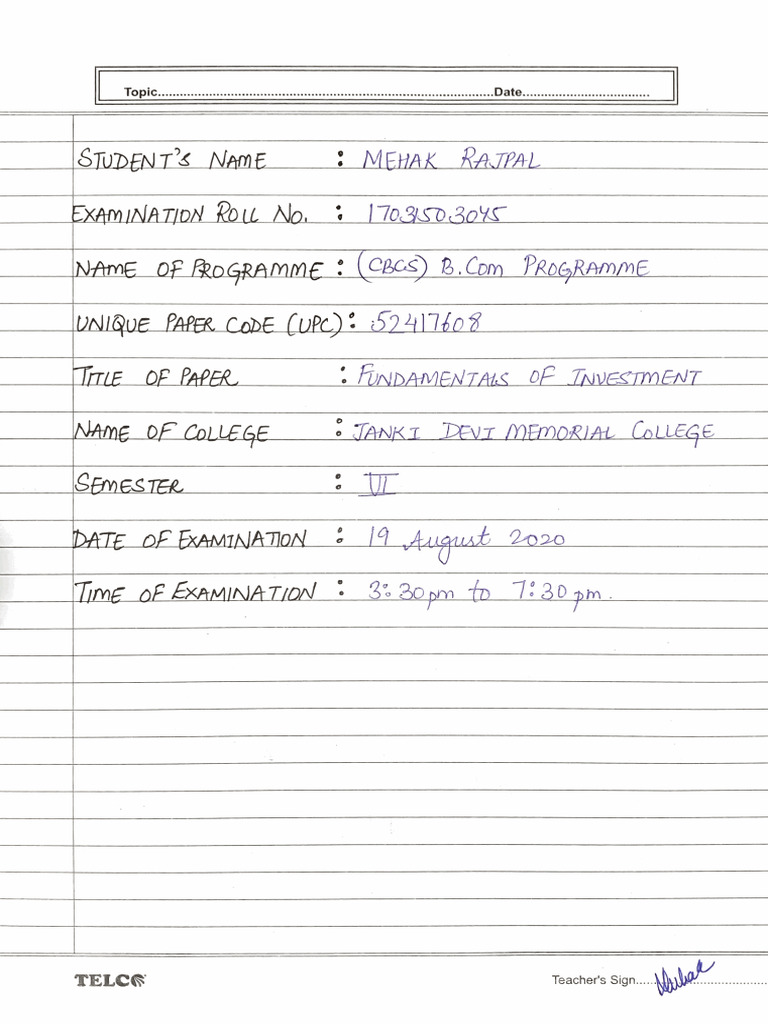 Topic..............................................................................................Date...................................
STUDENT'S NAME : MEHAK RAJPAL
EXAMINATION ROLL NO. : 17031503045
NAME OF PROGRAMME : (CBCS) B.COM PROGRAMME
UNIQUE PAPER CODE (UPC): 52417608
TITLE OF PAPER : FUNDAMENTALS OF INVESTMENT
NAME OF COLLEGE : JANKI DEVI MEMORIAL COLLEGE
SEMESTER : VI
DATE OF EXAMINATION : 19 August 2020
TIME OF EXAMINATION : 3:30pm to 7:30pm.
TELCO Teacher's Sign..... Mehak